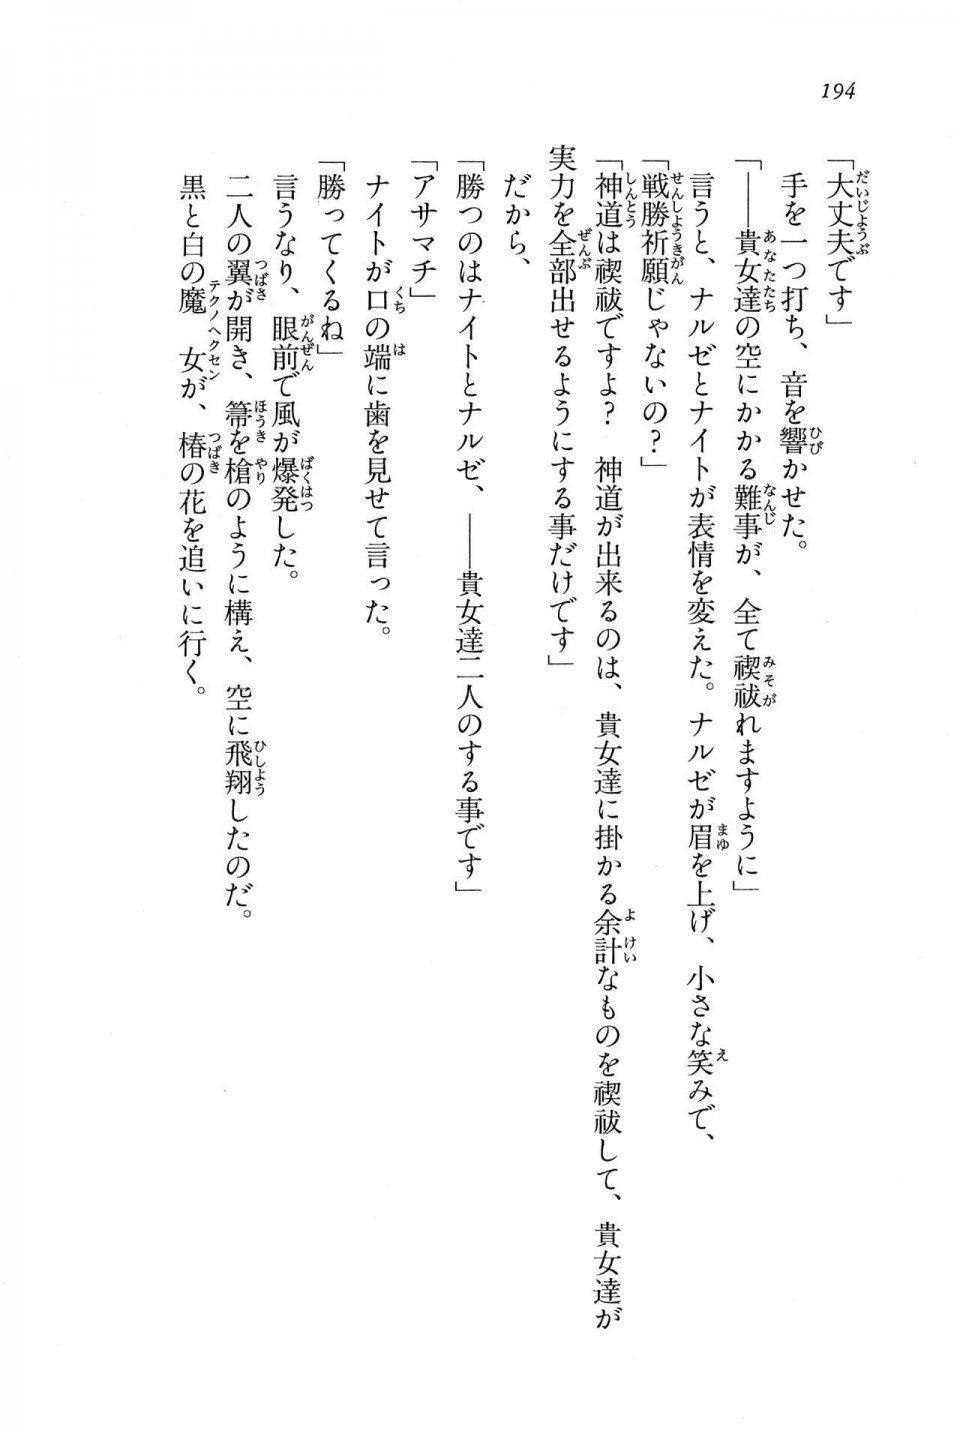 194
「大丈夫です」
手を一つ打ち、音を響かせた。
「――貴女達の空にかかる難事が、全て禊祓れますように」
言うと、ナルゼとナイトが表情を変えた。ナルゼが眉を上げ、小さな笑みで、
「戦勝祈願じゃないの？」
「神道は禊祓ですよ？　神道が出来るのは、貴女達に掛かる余計なものを禊祓して、貴女達が
実力を全部出せるようにする事だけです」
だから、
「勝つのはナイトとナルゼ、――貴女達二人のする事です」
「アサマチ」
ナイトが口の端に歯を見せて言った。
「勝ってくるね」
言うなり、眼前で風が爆発した。
二人の翼が開き、箒を槍のように構え、空に飛翔したのだ。
黒と白の魔女が、椿の花を追いに行く。